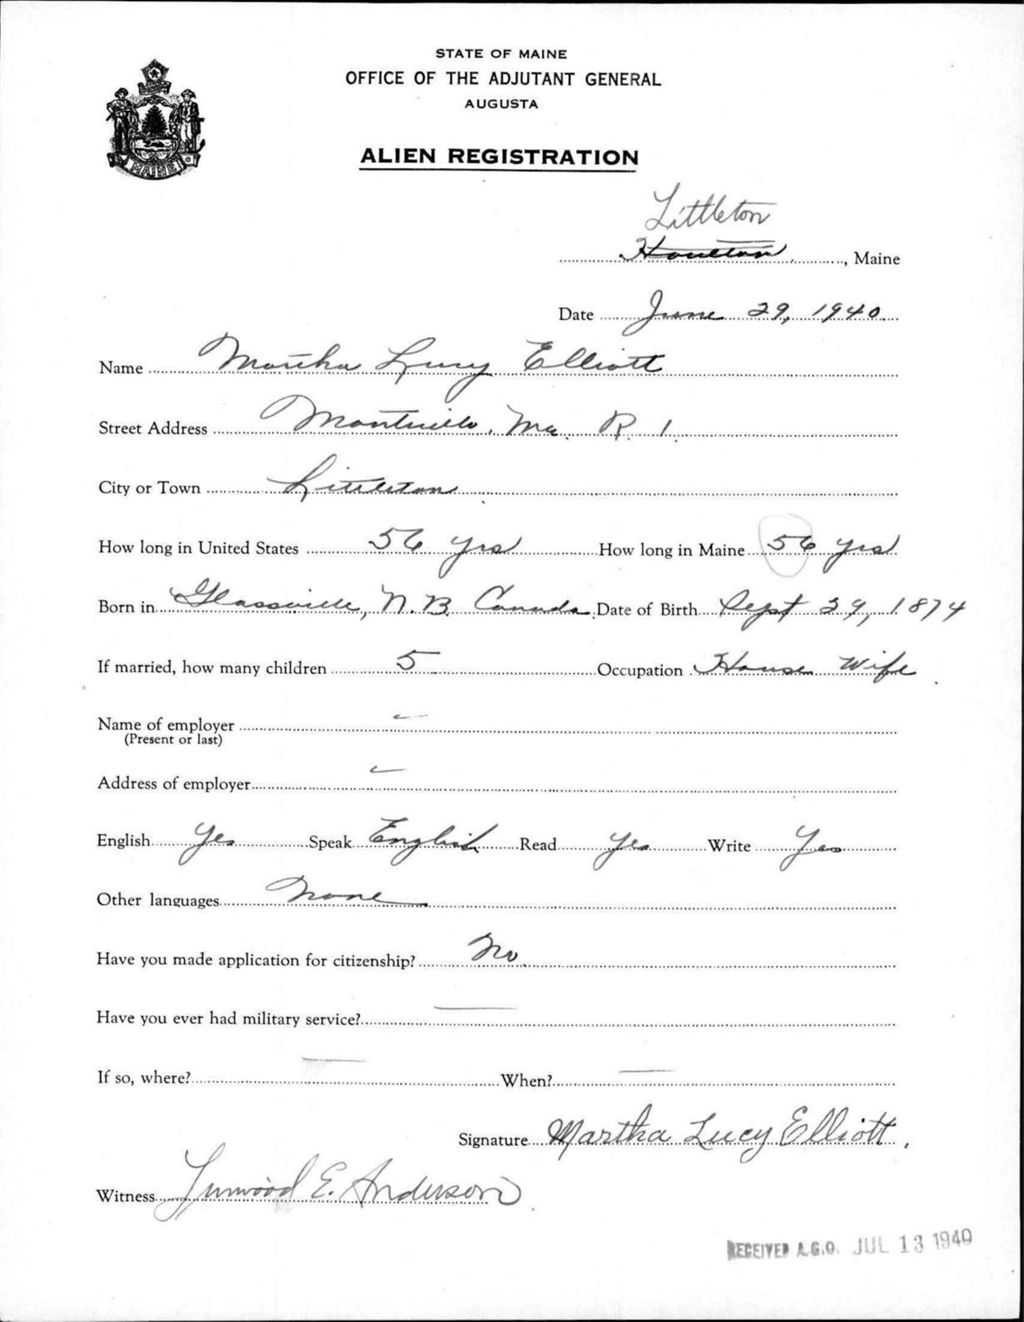 STATE OF MAINE
OFFICE OF THE ADJUTANT GENERAL
AUGUSTA
MAINE
ALIEN REGISTRATION
Littleton
Houlton, Maine
Date June 29, 1940
Name Martha Lucy Elliott
Street Address Monticello, Me. R. 1.
City or Town Littleton
How long in United States 56 yrs How long in Maine 56 yrs
Born in Glassville, N.B. Canada Date of Birth Sept 29, 1874
If married, how many children 5 Occupation House Wife
Name of employer
(Present or last)
Address of employer
English Yes Speak English Read Yes Write Yes
Other languages None
Have you made application for citizenship? No
Have you ever had military service?
If so, where? When?
Signature Martha Lucy Elliott.
Witness Linwood E. Anderson
RECEIVED A.G.O. JUL 13 1940